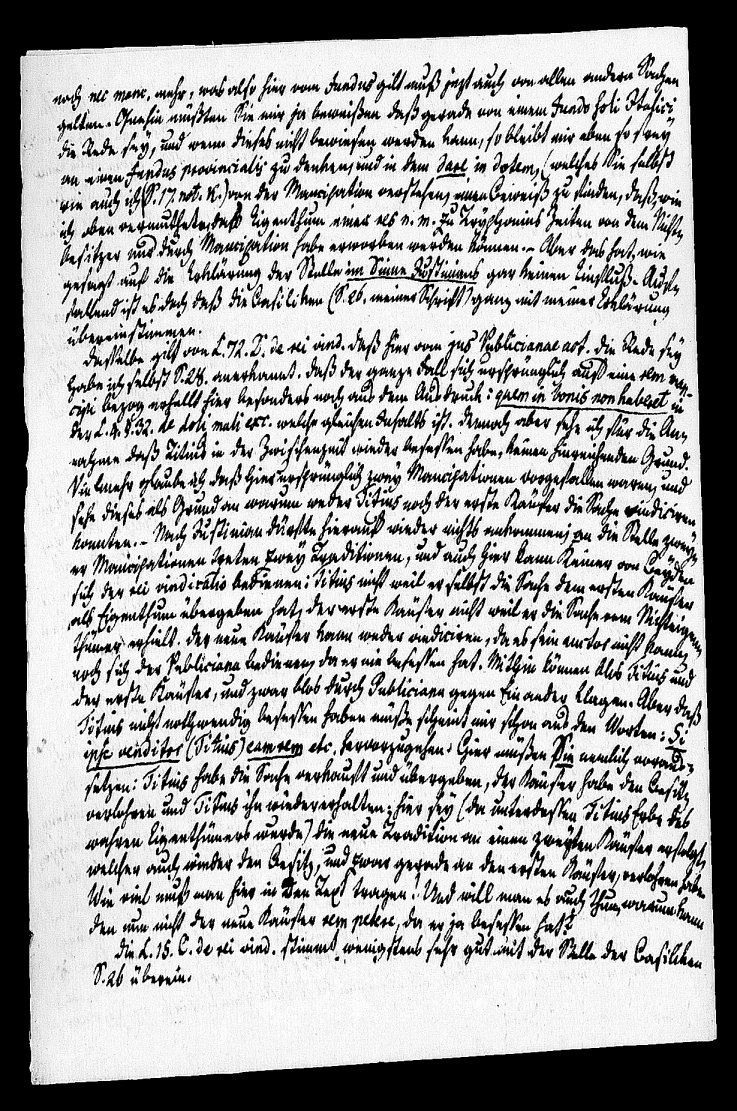 noch nec manc. mehr, was also hier vom Fundus gilt muß jezt auch von allen andern Sachen
gelten. Ohnehin müßten Sie mir ja beweißen daß gerade von einem Fundo soli Italici
die Rede sey, und wenn dieses nicht bewiesen werden kann, so bleibt mir eben so frey
an einen Fundus provincialis zu denken, und in dem dare in dotem, (welches Sie selbst
wie auch ich (S. 17. not. k.) von der Mancipation verstehen, einen Beweiß zu finden, daß, wie
ich oben vermuthete, das Eigenthum einer res n. m. zu Tryphonins Zeiten von dem Nicht-
besitzer nur durch Mancipation habe erworben werden können. – Aber das hat, wie
gesagt auf die Erklärung der Stelle im Sinne Justinians gar keinen Einfluß. Auf-
fallend ist es doch daß die Basiliken (S. 26. meiner Schrift) ganz mit meiner Erklärung
übereinstimmen.
Dasselbe gilt von L. 72. D. de rei vind. daß hier vom jus Publicianae act. die Rede sey
habe ich selbst S. 28. anerkannt. daß der ganze Fall sich ursprünglich auf eine rem man-
cipi bezog erhellt hier besonders noch aus dem Ausdruck: quem in bonis non haberet, in
der L. 4. §. 32. de doli mali exc. welche gleichen Inhalts ist. dennoch aber sehe ich für die An-
nahme daß Titius in der Zwischenzeit wieder besessen habe, keinen hinreichenden Grund.
Vielmehr glaube ich daß hier ursprünglich zwey Mancipationen vorgefallen waren, und
sehe dieses als Grund an warum weder Titius noch der erste Käufer die Sache vindiciren
konnten. – Nach Justinian dürfte hierauf wieder nichts ankommen; an die Stelle zwey-
er Mancipationen treten zwey Traditionen, und auch hier kann Keiner von Beyden
sich der rei vindicatio bedienen: Titius nicht weil er selbst die Sache dem ersten Käufer
als Eigenthum übergeben hat, der erste Käufer nicht weil er die Sache vom Nichteigen-
thümer erhielt. der neue Käufer kann weder vindiciren, da es sein auctor nicht konnte,
noch sich der Publiciana bedienen, da er nie besessen hat. Mithin können blos Titius und
der erste Käufer, und zwar blos durch Publiciana gegen Einander klagen. Aber daß
Titius nicht nothwendig besessen haben müße scheint mir schon aus den Worten: Si
ipse venditor (Titius) eam rem etc. hervorzugehen. Hier müßen Sie nemlich voraus-
setzen: Titius habe die Sache verkauft und übergeben, der Käufer habe den Besitz
verlohren und Titius ihn wiedererhalten; hier sey (da unterdessen Titius Erbe des
wahren Eigenthümers wurde) die neue Tradition an einen zweyten Käufer erfolgt,
welcher auch wieder den Besitz, und zwar gerade an den ersten Käufer, verlohren habe.
Wie viel muß man hier in den Text tragen! Und will man es auch thun, warum kann
den nun nicht der neue Käufer rem petere, da er ja besessen hat?
Die L. 15. C. de rei vind. stimmt wenigstens sehr gut mit der Stelle der Basiliken
S. 26 überein.